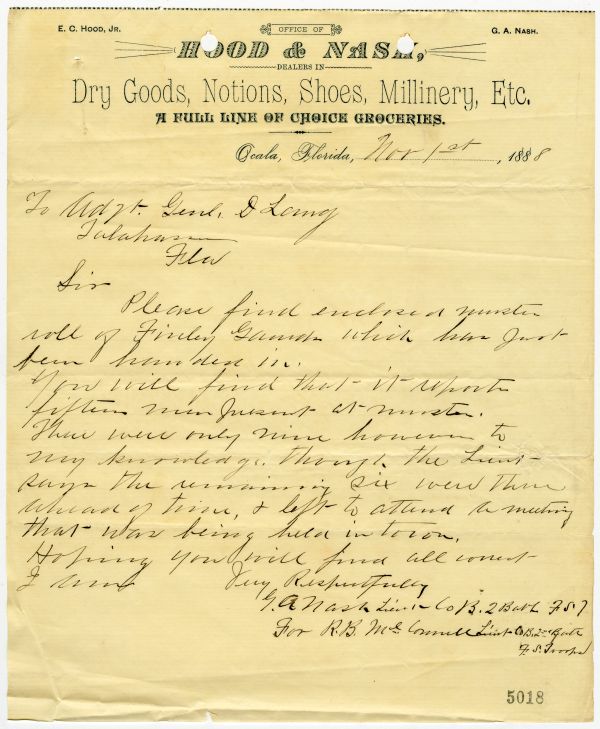 E. C. Hood, Jr.
OFFICE OF
G. A. Nash.
HOOD & NASH,
DEALERS IN
Dry Goods, Notions, Shoes, Millinery, Etc.
A FULL LINE OF CHOICE GROCERIES.
Ocala, Florida, Nov 1st, 1888
To Adgt. Genl. D Lang
Talahassee
Fla
Sir
Please find enclosed muster
roll of Finley Gaurds which has just
been handed in.
You will find that it reports
fifteen men present at muster.
There were only nine however to
my knowledge. though the Lieut
says the remaining six were there
ahead of time, & left to attend a meeting
that was being held in town.
Hoping you will find all correct
I am Very Respectfully
G. A Nash Lieut Co B. 2 Batl F S T
For R. B. McConnell Lieut Co B. 2nd Batl
F. S. Troops
5018